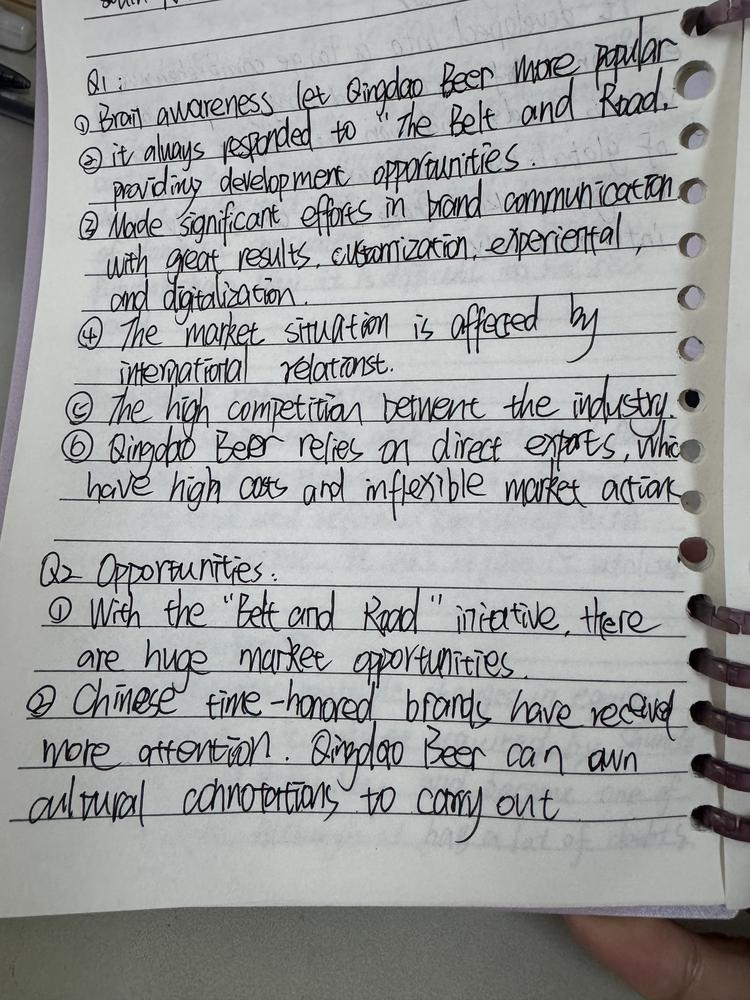 Q1:
① Bran awareness let Qingdao Beer more popular
② it always responded to "The Belt and Road,
providing development opportunities.
③ Made significant efforts in brand communication
with great results, customization, experiental,
and digitalization.
④ The market situation is affected by
international relationst.
⑤ The high competition betwent the industry.
⑥ Qingdao Beer relies on direct exports, whic
have high costs and inflexible market action
Q2 Opportunities:
① With the "Belt and Road" initative, there
are huge market opportunities.
② Chinese time-honored brands have received
more attention. Qingdao Beer can own
cultural connotations to carry out